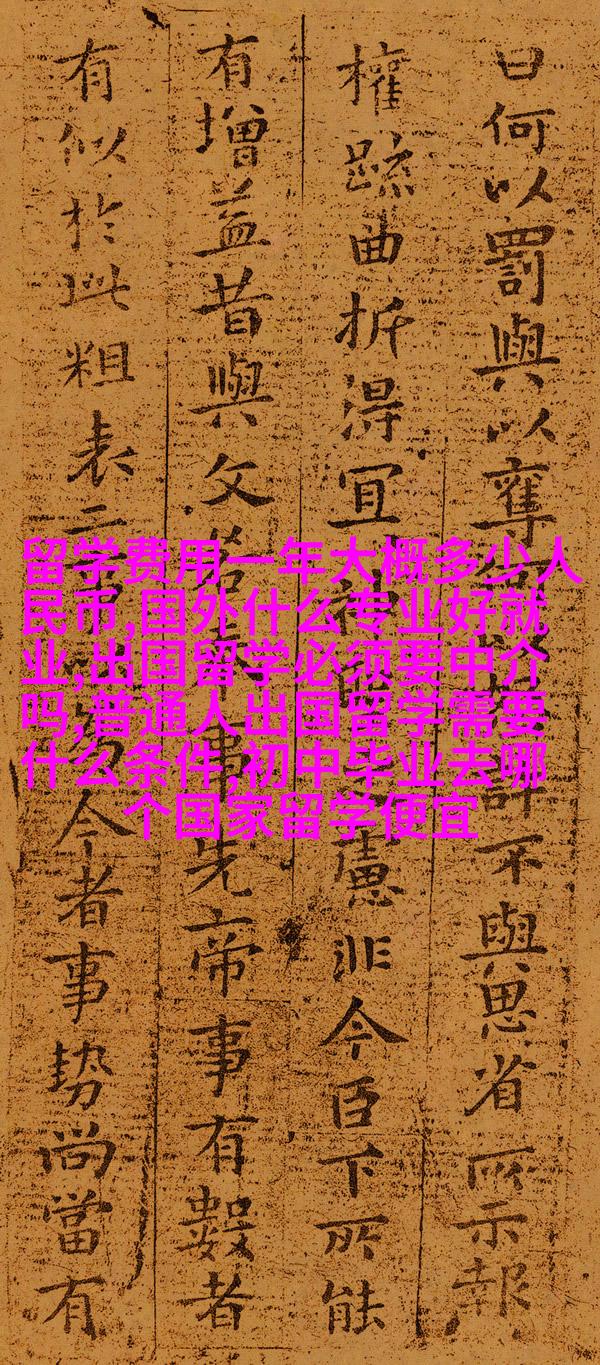 留学费用一年大概多少人
民币,国外什么专业好就
业,出国留学必须要中介
吗,普通人出国留学需要
什么条件,初中毕业去哪
个国家留学便宜
曰何以罰與以奪許不與思省所示報
權踈曲折得冝神慮非今臣下所能
有增益昔與文事先帝事有數者
有似於此粗表二今者事勢尚當有